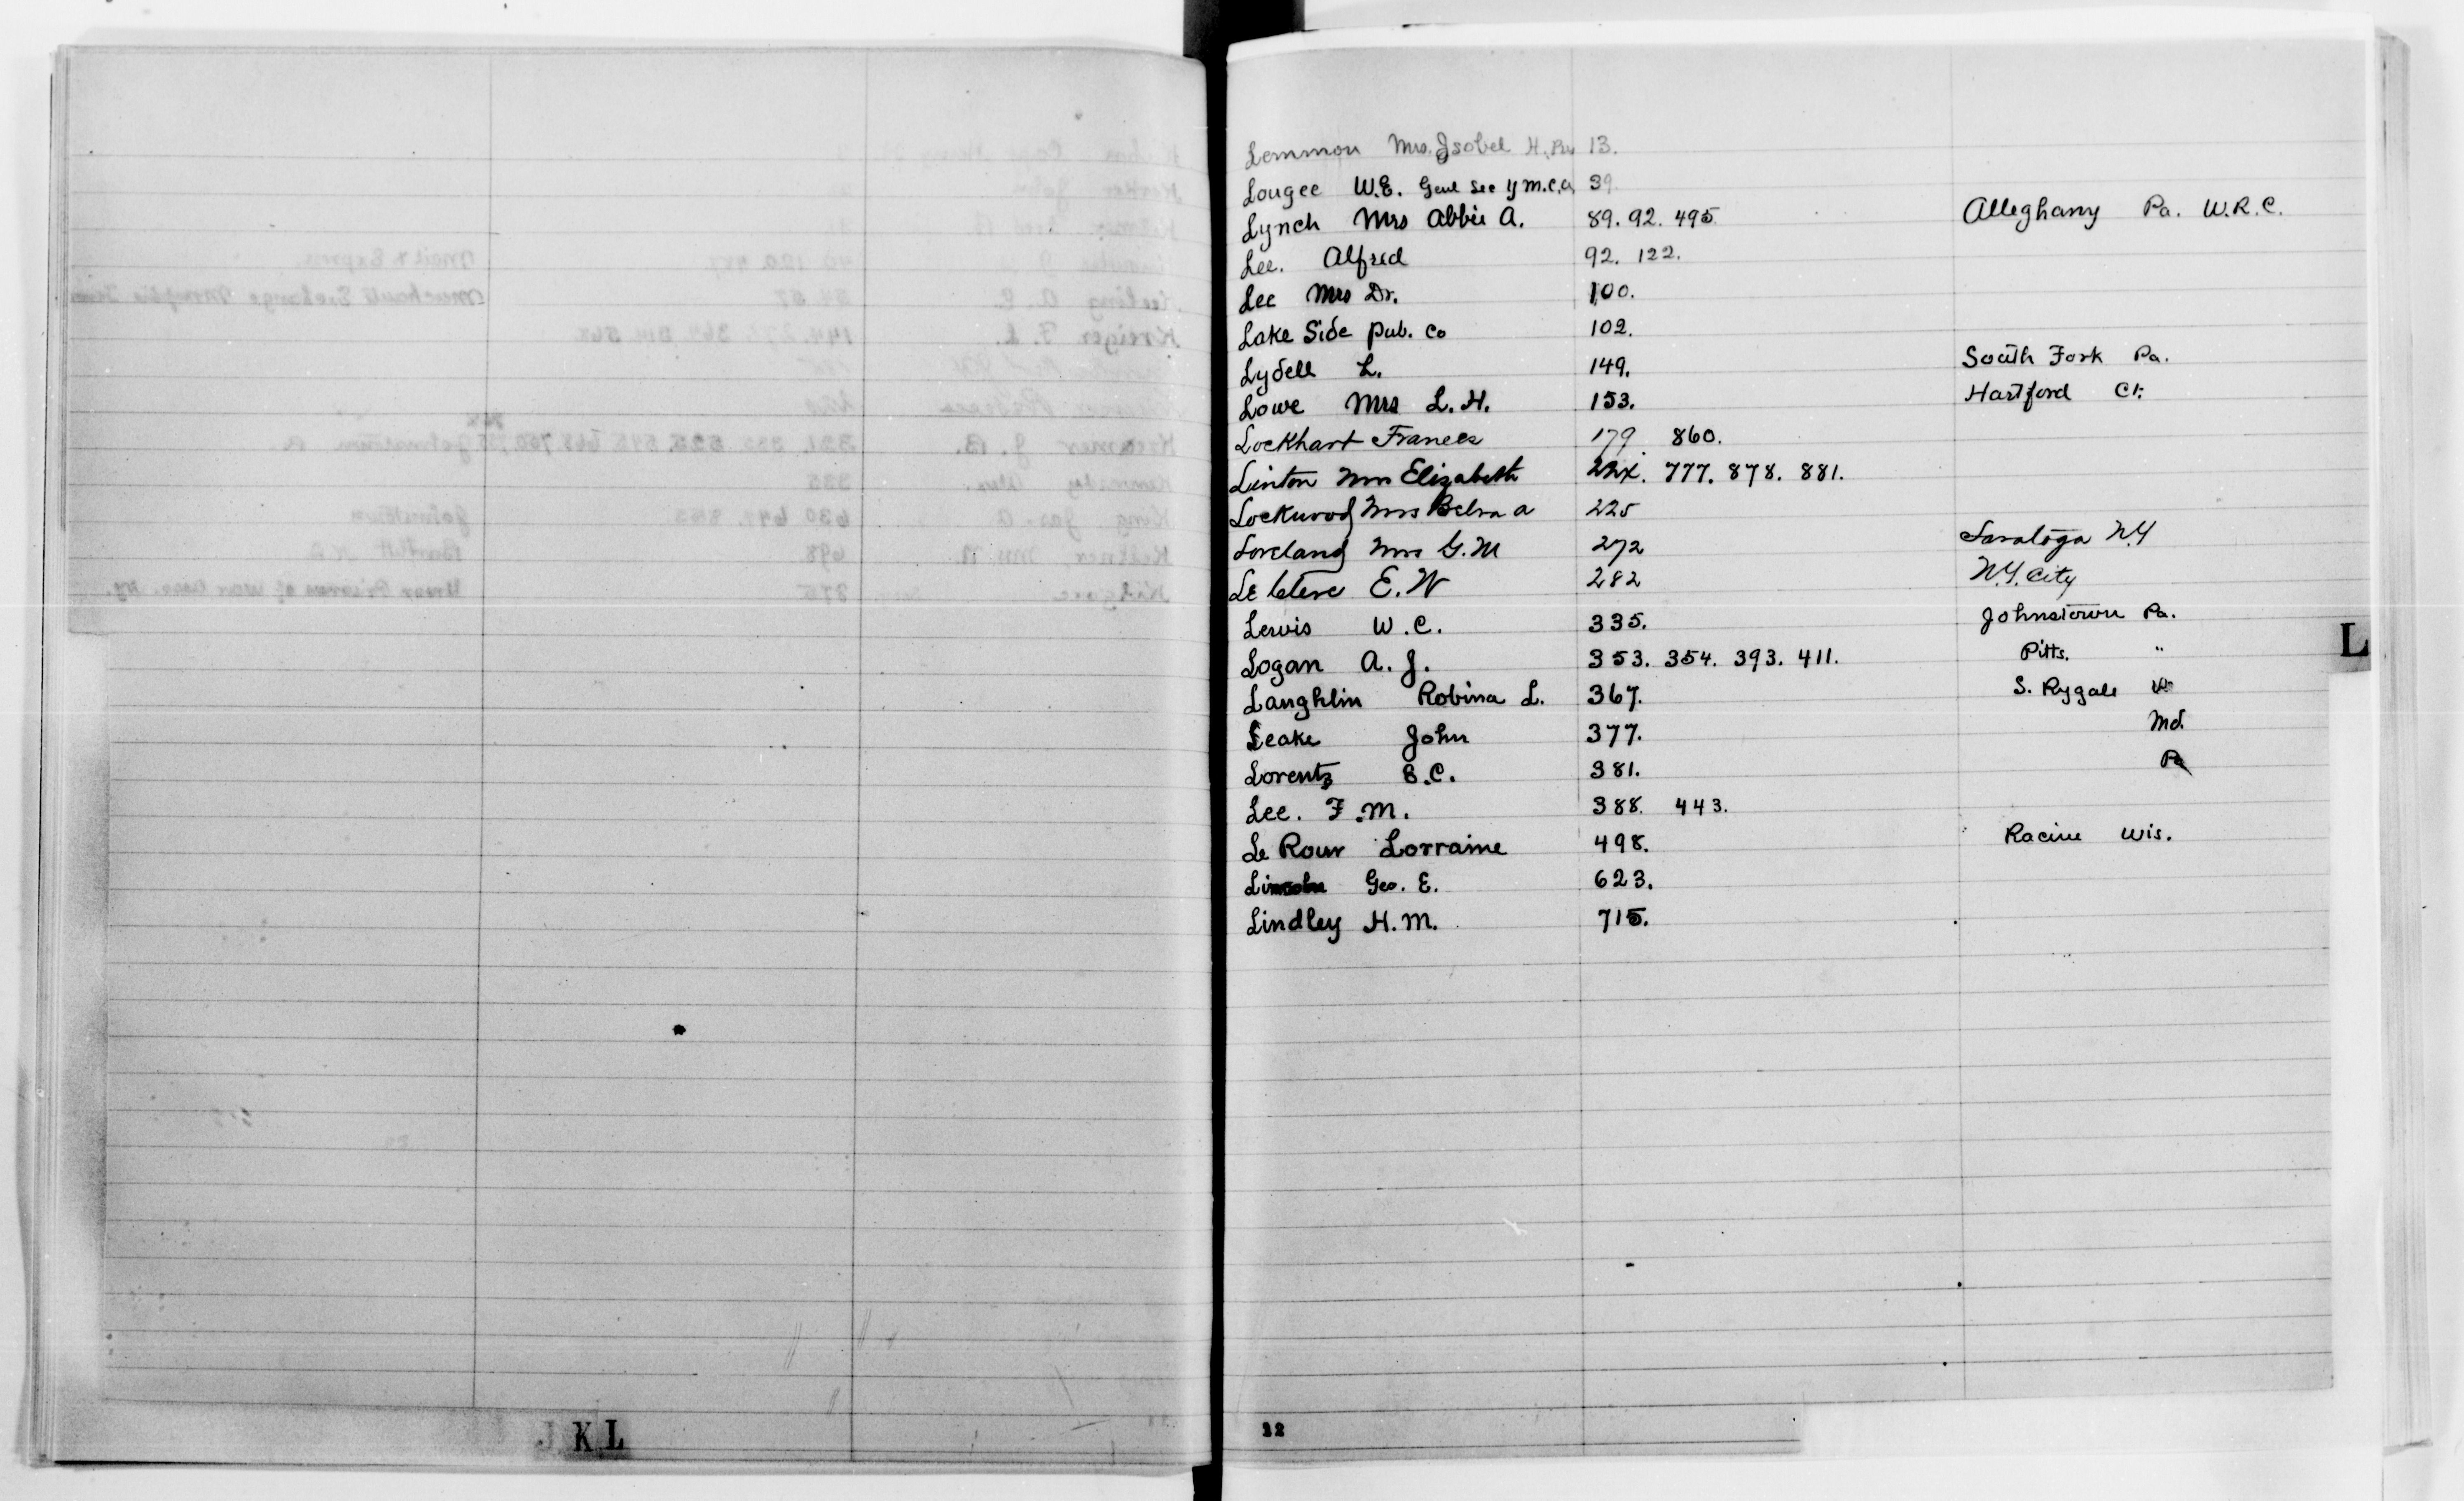 Lemmon Mrs. Isobel H. 13.
Lougee W.E. Genl Sec Y.M.C.A. 39
Lynch Mrs Abbie A. 89. 92. 495. Alleghany Pa. W.R.C.
Lee. Alfred 92. 122.
Lee Mrs Dr. 100.
Lake Side Pub. Co 102.
Lydell L. 149. South Fork Pa.
Lowe Mrs L. H. 153. Hartford Ct.
Lockhart Frances 179. 860.
Linton Mrs Elizabeth 777. 878. 881.
Lockwood Mrs Belva a 225
Loveland Mrs G. M 272 Saratoga N.Y
E. W 282 N.Y. City
Lewis W. C. 335. Johnstown Pa.
Logan A. J. 353. 354. 393. 411. Pitts. "
Laughlin Robina L. 367. S. Rygate
Leake John 377. Md.
Lorentz S.C. 381. Pa
Lee. F. M. 388. 443.
Le Roux Lorraine 498. Racine Wis.
Geo. E. 623.
Lindley H. M. 715.
L
J K L
22